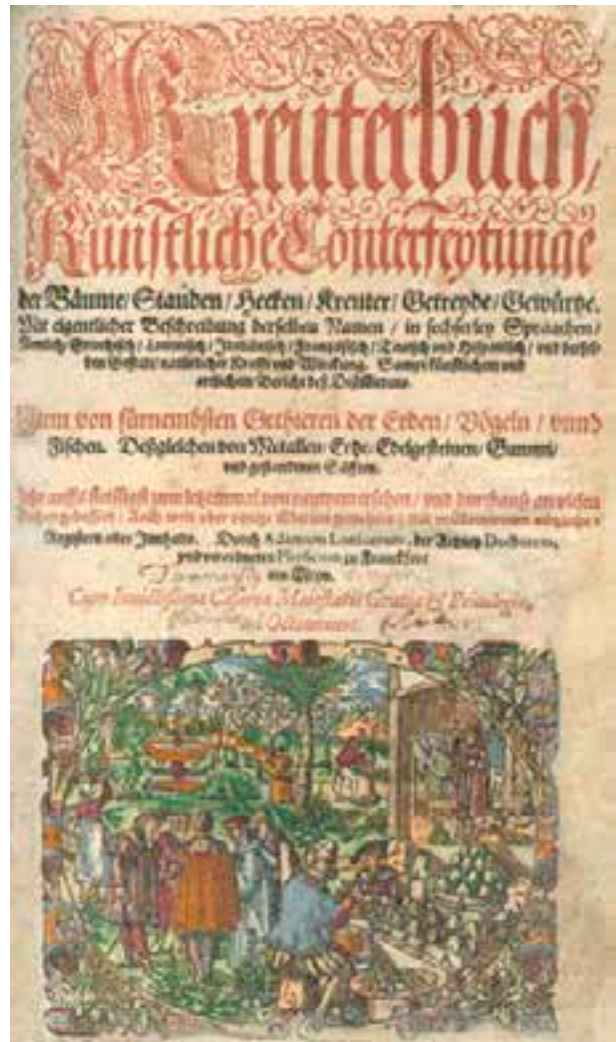 Kreuterbuch/
Künstliche Conterfeytunge
der Bäume/ Stauden/ Hecken/ Kreuter/ Getreyde/ Gewürtze.
Mit eigentlicher Beschreibung derselben Namen/ in sechserley Spraachen/
Griechisch/ Lateinisch/ Italiänisch/ Frantzösisch/ Teutsch und Hispanisch/ und
natürlicher Krafft und Wirckung. Sampt künstlichem und
artlichem Bericht deß Destillierens.
Item von fürnembsten Gethieren der Erden/ Vögeln/ vnnd
Fischen. Deßgleichen von Metallen/ Ertze/ Edelgesteinen/ Gummi/
und gestandenen Säfften.
Jetzo auffs fleissigst zum letztenmal von neuwem ersehen/ und durchauß an vielen
Registern Durch Adamum Lonicerum, der Artzney Doctorem,
und verordneten Physicum zu Franckfort
am Mayn.
Cum Caesareae Maiestatis Gratia & Privilegio,